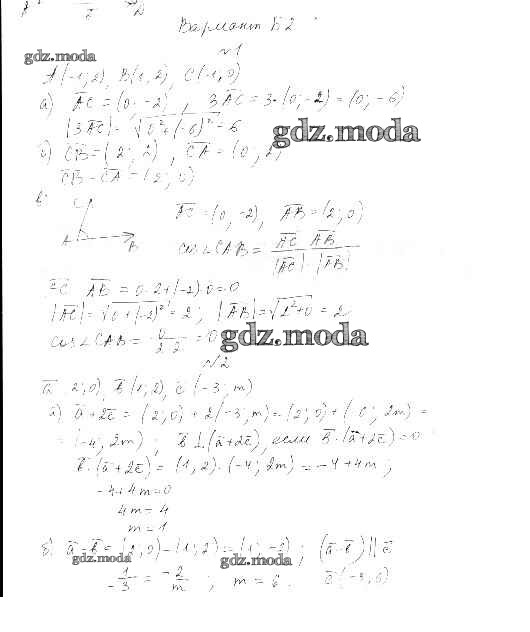 Вариант Б2
gdz.moda
№1
A(-1;2), B(1,2), C(-1,0)
а) AC = (0; -2), 3AC = 3·(0;-2) = (0; -6)
|3AC| = √0²+(-6)² = 6
gdz.moda
б) CB = (2; 2), CA = (0; 2)
CB - CA = (2; 0)
в)
C
A
B
AC = (0, -2), AB = (2; 0)
cos∠CAB = AC AB / |AC| · |AB|
AC AB = 0·2+(-2)·0 = 0
|AC| = √0+(-2)² = 2; |AB| = √2²+0 = 2
cos∠CAB = 0/2·2 = 0
gdz.moda
№2
a 2;0), b(1;2), c(-3; m)
а) a+2c = (2;0) + 2(-3,m) = (2;0) + ( 0; 2m) =
= (-4; 2m); b⊥(a+2c), если b·(a+2c) = 0
b·(a+2c) = (1,2)·(-4; 2m) = -4+4m;
-4+4m=0
4m=4
m=1
б) a-b = (2,0)-(1;2) = (1;-2); (a-b)||c
gdz.moda
gdz.moda
1/-3 = -2/m; m = 6. c(-3,6)